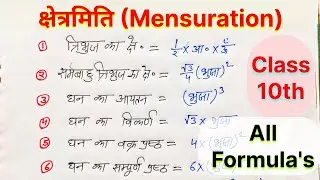 क्षेत्रमिति (Mensuration)
① त्रिभुज का क्षे॰ = 1/2 × आ॰ × ऊँ
② समबाहु त्रिभुज का क्षे॰ = √3/4 (भुजा)²
③ घन का आयतन = (भुजा)³
④ घन का विकर्ण = √3 × भुजा
⑤ घन का वक्र पृष्ठ = 4 × (भुजा)²
⑥ घन का सम्पूर्ण पृष्ठ = 6 ×
Class
10th
All
Formula's